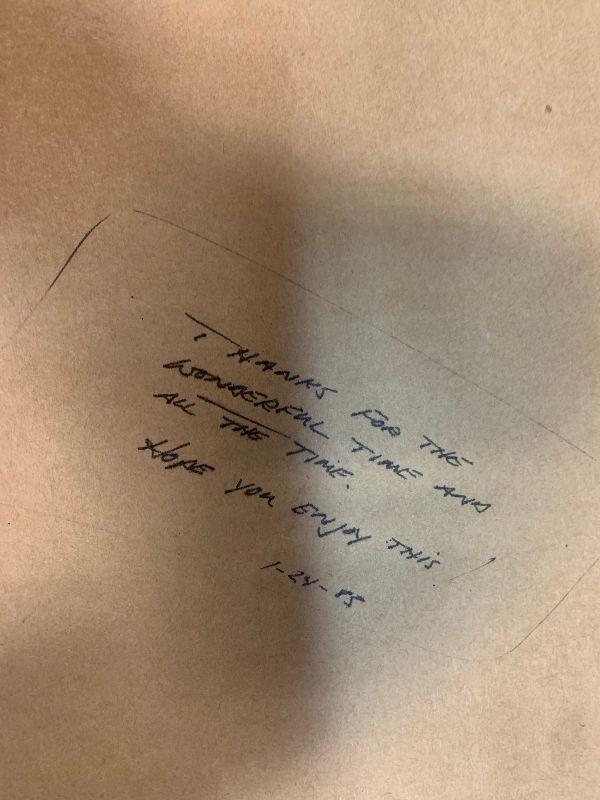 THANKS FOR THE
WONDERFUL TIME AND
ALL THE TIME.
HOPE YOU ENJOY THIS
1-24-85